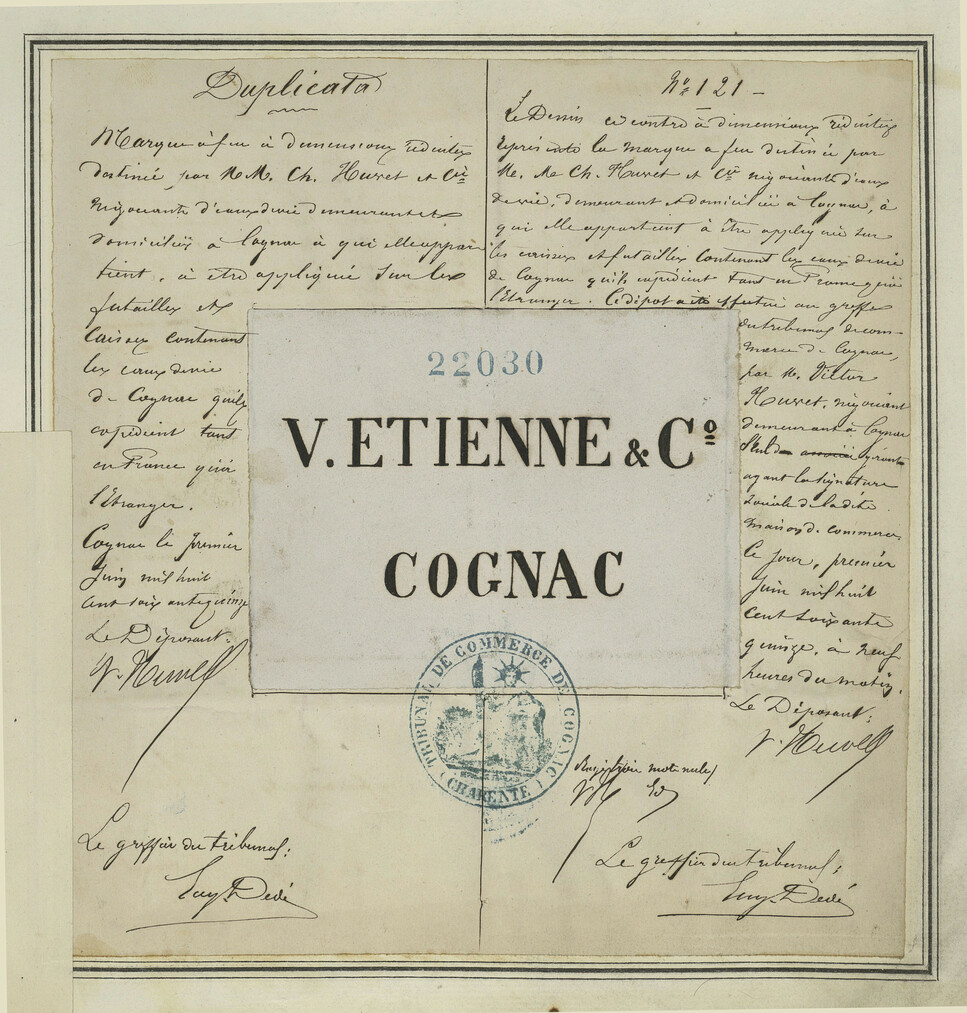 Duplicata
Marque à feu à dimensions réduites
destinée par M.M. Ch. Huvet et Cie
négociants d'eaux de vie demeurant et
domiciliés à Cognac à qui elle appar
tient, à être appliquée sur les
futailles et
caisses contenant
les eaux de vie
de Cognac qu'ils
expédient tant
en France qu'à
l'Etranger.
Cognac le premier
Juin mil huit
cent soixante quinze
Le Déposant:
Le greffier du tribunal:
Eug. Dedé
No 121 -
Le Dessin ci contre à dimensions réduites
représente la marque à feu destinée par
M. M. Ch. Huvet et Cie négociants d'eaux
de vie, demeurant et domiciliés à Cognac, à
qui elle appartient à être appliquée sur
les caisses et futailles contenant les eaux de vie
de Cognac qu'ils expédient tant en France qu'à
l'Etranger. Ce dépot a été effectué au greffe
du tribunal de com-
merce de Cognac,
par M. Victor
Huvet, négociant
demeurant à Cognac
Seul associé gérant
ayant la signature
sociale de la dite
maison de commerce
Ce jour, premier
Juin mil huit
cent soixante
quinze, à neuf
heures du matin.
Le Déposant:
Rayé trois mots nuls
Le greffier du tribunal:
Eug. Dedé
22030
V. ETIENNE & Co
COGNAC
TRIBUNAL DE COMMERCE DE COGNAC
(CHARENTE)